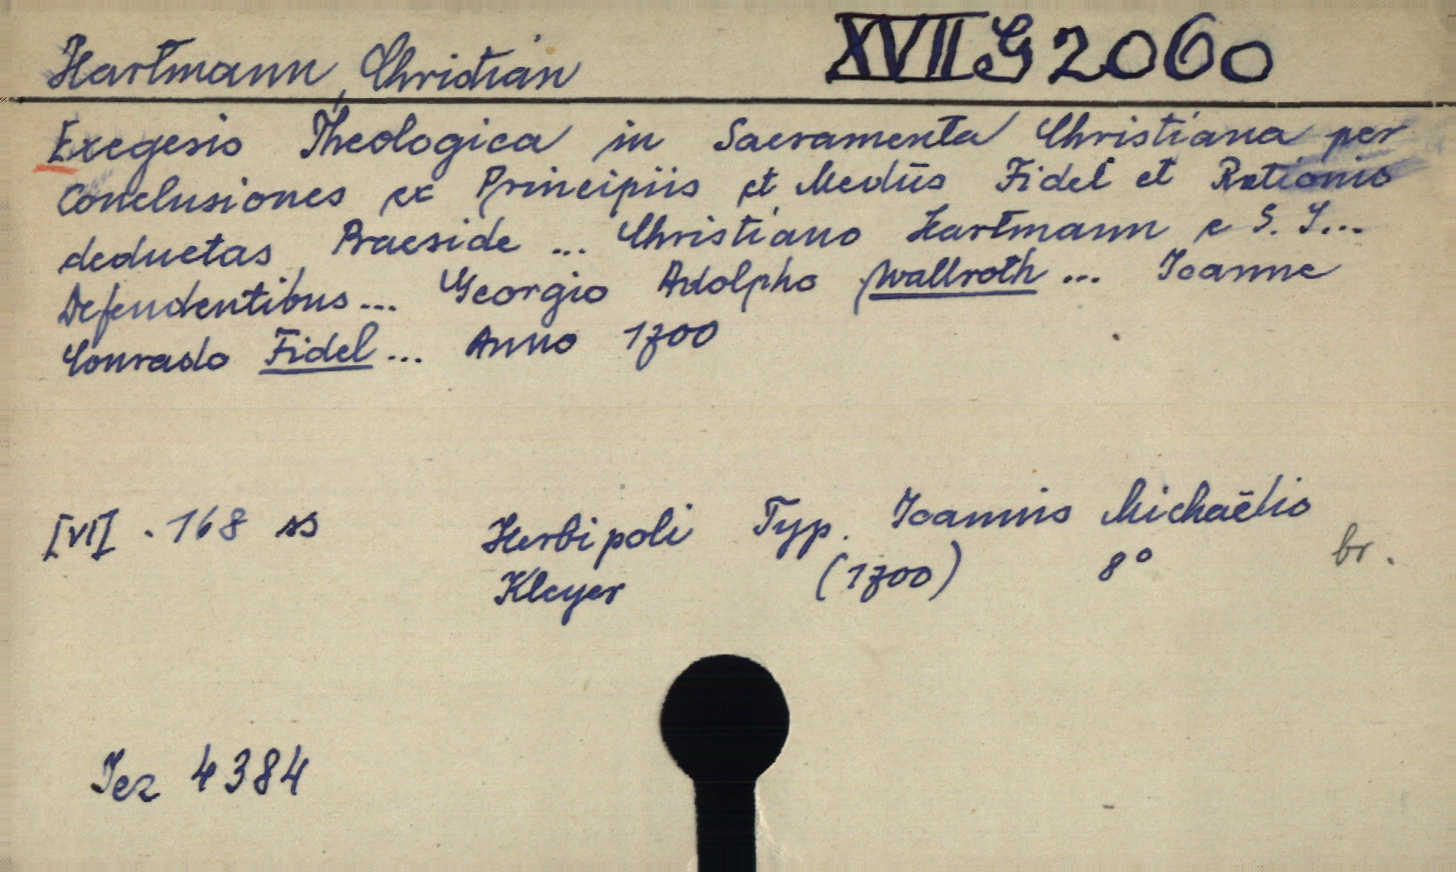 Hartmann, Christian XVII G 2060
Exegesis Theologica in Sacramenta Christiana per
Conclusiones ex Principiis et Mediis Fidei et Rationis
deductas Praeside ... Christiano Hartmann e S. J...
Defendentibus... Georgio Adolpho Wallroth ... Joanne
Conrado Fidel ... Anno 1700
[VI]. 168 ss Herbipoli Typ. Joannis Michaëlis
Kleyer (1700) 8° br.
Jez 4384